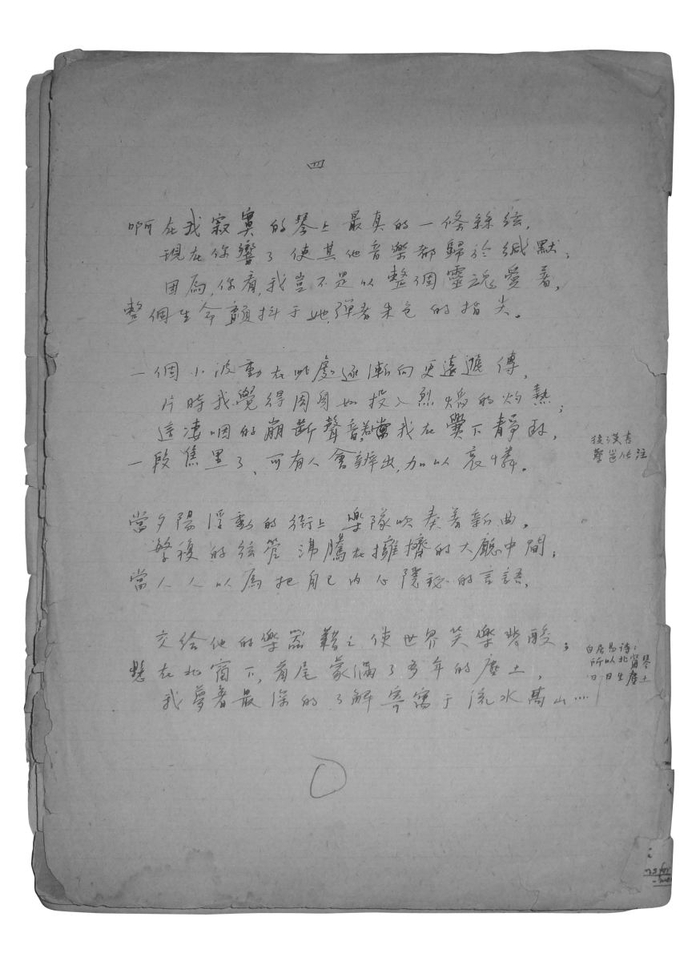 四
啊在我寂寞的琴上最真的一條絲弦，
現在你響了使其他音樂都歸於緘默，
因爲，你看，我豈不是以整個靈魂愛着，
整個生命顫抖于她彈着朱色的指尖。
一個小波動在此處逐漸向更遠遞傳，
片時我覺得肉身如投入烈焰的灼熱；
這凄咽的崩斷聲音 我在爨下靜聽，
一段焦黑了，可有人會辨出，加以哀憐。
後漢書
蔡邕傳注
當夕陽浮動的街上樂隊吹奏着新曲，
繁複的絃管沸騰在擁擠的大廳中間，
當人人以爲把自己内心隱秘的言語，
交给他的樂器藉之使世界笑樂 酸；
懸在北窗下，首尾蒙滿了多年的塵土，
我夢着最深的了解寄寓于流水高山…
白居易詩：
所以北窗琴
日日生塵土